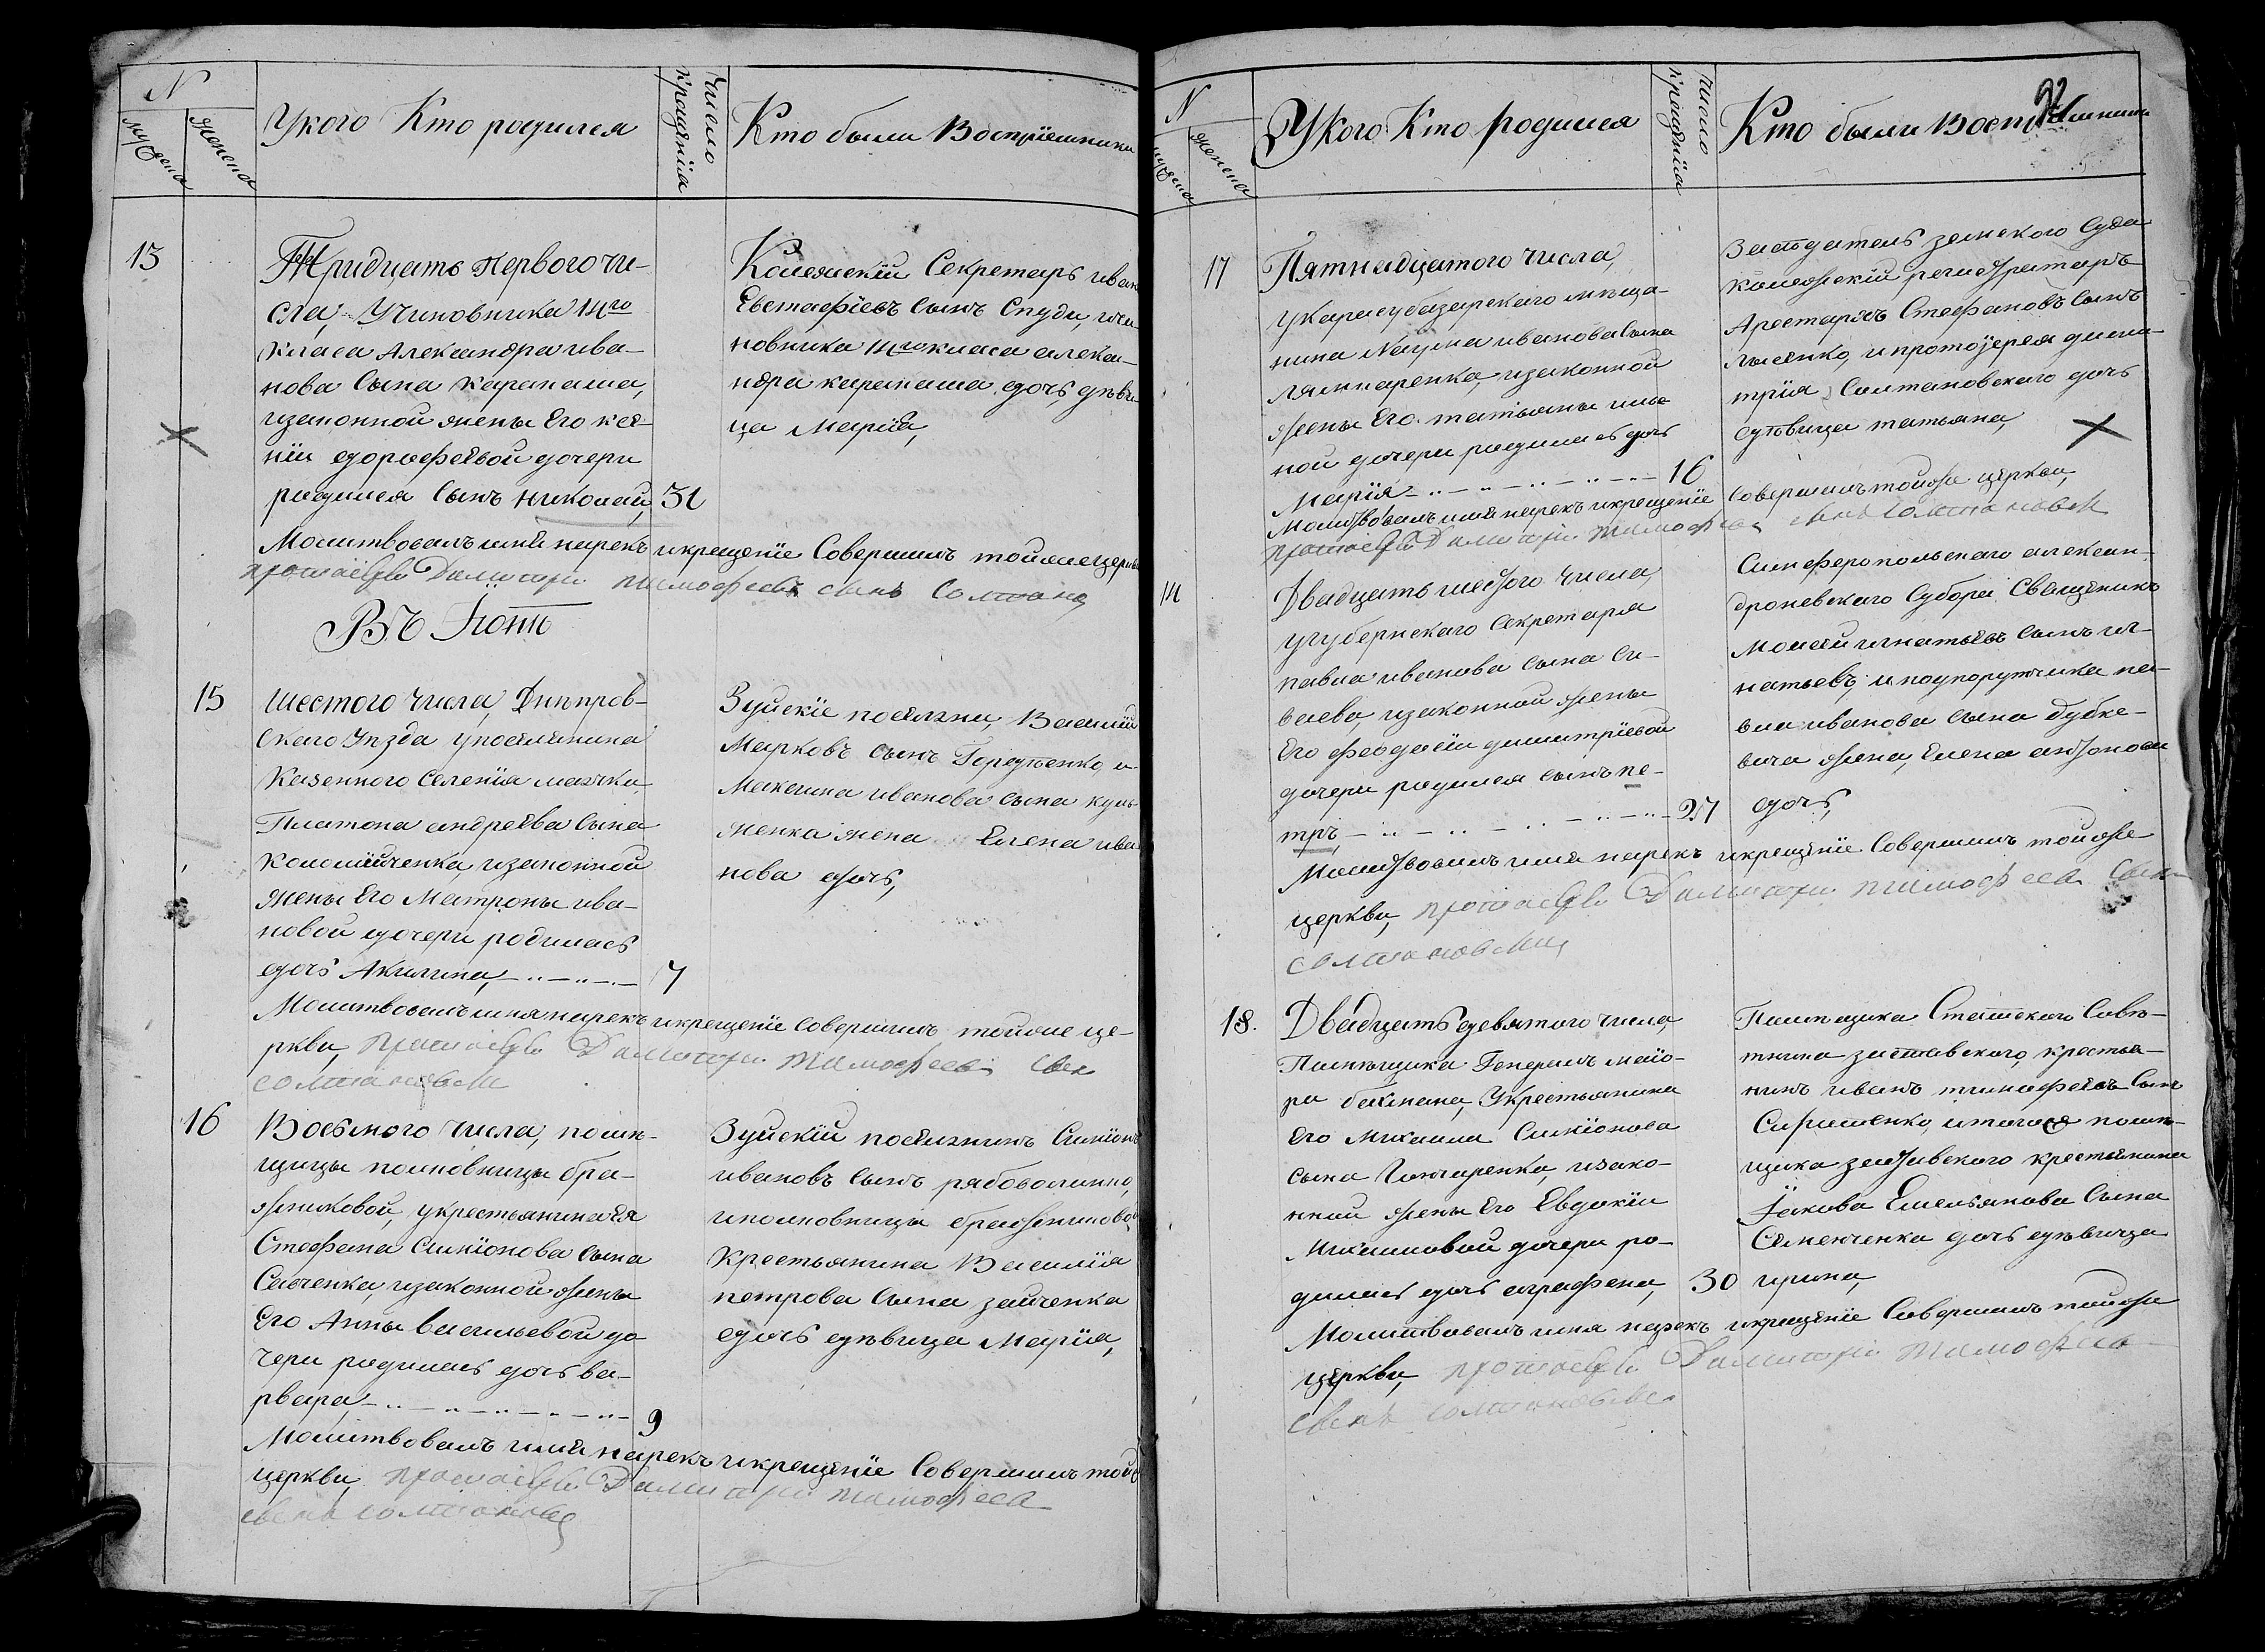 N
мужеска
женска
Укого Кто родился
Число
крещенія
Кто были Воспріемники
13
Тридцать первого чи-
сла, Учиновника 14го
класа Александра ива-
нова сына карапаша,
изаконной жены Его ксе-
ніи едорофеевой дочери
родился сынъ николай, 31
Колежскій Секретарь иван
Евстафіевъ сынъ Спуди, ичи-
новника 14го класа алекса-
ндра карапаша дочь дѣви-
ца Марія,
Молитвовалъ имя нарекъ икрещеніе Совершилъ тойже церкви
протоіерей Димитрій тимофеевъ сынъ
Въ Іюнѣ
15
шестого числа, Днѣпров-
скаго Уѣзда упоселянина
Казенного Селенія маячка
Платона андреева сына
Коломійченка изаконной
жены Его Матроны ива-
новой дочери родилась
дочь Акилина, 7
Зуйскіе поселяни, Василій
Марковъ сынъ Середенко, и
Максима иванова сына куль
женка жена Елена ива
нова дочь,
Молитвовалъ имя нарекъ икрещеніе совершилъ тойже це-
ркви, протоіерей Димитрій тимофеевъ сынъ
солтановскій
16
Восьмого числа, помѣ-
щицы полковницы бра-
жниковой, укрестьянина Ея
Стефана Симіонова сына
Савченка, изаконной жены
Его Анны васильевой до
чери родилась дочь ва-
рвара, 9
Зуйскій поселянинъ Симіонъ
ивановъ сынъ рябоволинко,
иполковницы бражниковой
крестьянина Василія
петрова сына зайченка
дочь дѣвица Марія,
Молитвовалъ имя нарекъ икрещеніе Совершилъ той
церкви, протоіерей Димитрій тимофеевъ
сынъ солтановскій
N
мужеска
женска
Укого Кто родился
Число
крещенія
Кто были Воспріемники
92
17
Пятнадцатого числа,
укарасубазарскаго мѣща-
нина Наума иванова сына
лямпаренка, изаконной
жены Его татьяны
ной дочери родилась дочь
марія 16
Заседатель земского Суда
колежскій регистраторъ
Аристархъ Стефановъ сынъ
лысенко, ипротоіерея дими-
трія Солтановскаго дочь
дѣвица татьяна,
Молитвовалъ имя нарекъ икрещеніе совершилъ тойже церкви,
протоіерей Димитрій тимофеевъ сынъ солтановскій
14
Двадцать шестого числа,
угубернскаго Секретаря
павла иванова сына си-
ваева, изаконной жены
Его феодосіи димитріевой
дочери родился сынъ пе-
тръ, 27
Симферопольскаго алексан-
дроневскаго Субора Священикъ
моисей игнатьевъ сынъ иг-
натьевъ, и подпорутчика па-
вла иванова сына дубке-
вича жена, Елена антонова
дочь,
Молитвовалъ имя нарекъ икрещеніе Совершилъ тойже
церкви, протоіерей Димитрій тимофеевъ сынъ
солтановскій,
18.
Двадцать девятого числа,
Помѣщика Генералъ маіо-
ра бахмана, Укрестьянина
Его Михаила Симіонова
сына Гончаренка, изако-
нной жены Его Евдокіи
Михайловой дочери ро-
дилась дочь аграфена, 30
Помѣщика Статского Совѣ-
тника заставского, крестья-
нинъ иванъ тимофеевъ сынъ
итогоже помѣ-
щика заставского крестьянина
Іакова Емельянова сына
Семенченка дочь дѣвица
ирина,
Молитвовалъ имя нарекъ икрещеніе Совершилъ тойже
церкви, протоіерей Димитрій тимофеевъ
сынъ солтановскій